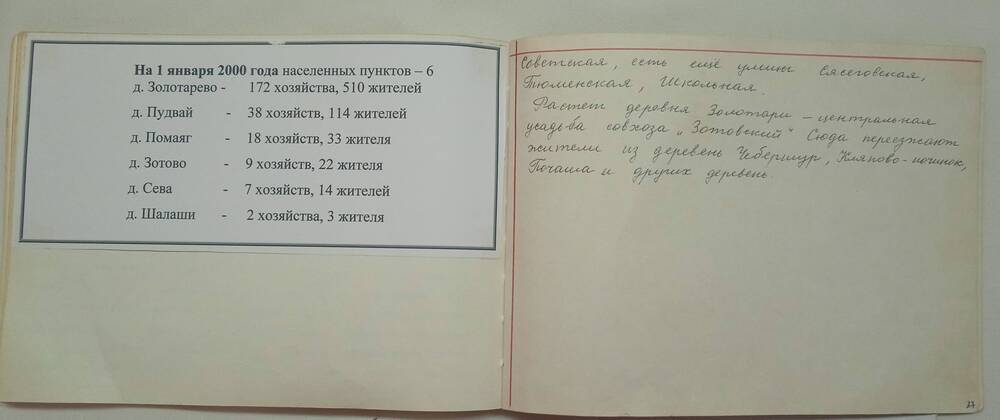 На 1 января 2000 года населенных пунктов – 6
д. Золотарево - 172 хозяйства, 510 жителей
д. Пудвай - 38 хозяйств, 114 жителей
д. Помаяг - 18 хозяйств, 33 жителя
д. Зотово - 9 хозяйств, 22 жителя
д. Сева - 7 хозяйств, 14 жителей
д. Шалаши - 2 хозяйства, 3 жителя
Советская, есть ещё улицы Сясеговская,
Тюменская, Школьная.
Растет деревня Золотари – центральная
усадьба совхоза „Зотовский“ Сюда переезжают
жители из деревень Чебершур, Кляпово-починок,
Почаша и других деревень.
27